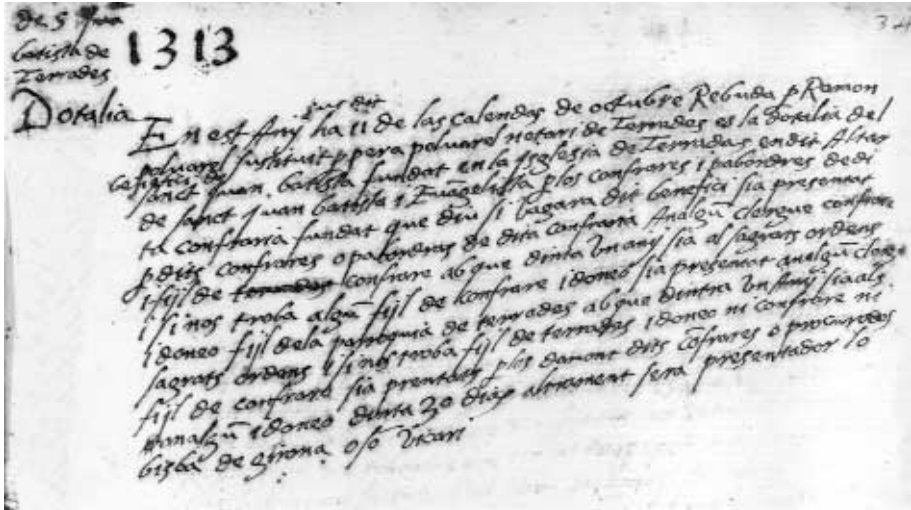 de S Jua
batista de
Terrades
1313
34
Dotalia
jus dit
En est Anÿ ha 11 de las calendas de octubre Rebuda p Ramon
poluarel sustituit p pera poluarel notari de Terrades es la dotalia del
benifici de
sanct Juan Batista fundat en la Iglesia de Terradas en dit Altar
de sanct Juan batista i Evangelista p los confrares i pabordres de di
ta confraria fundat que diu si bagara dit benefici sia presentat
p dits confrares o pabordres de dita confraria Analgū clergue confrare
i fijl de confrare ab que dintra un anÿ sia al sagrats ordens
i si nos troba algū fijl de konfrare idoneo sia presentat analgū clergue
idoneo fijl de la parroquia de terrades ab que dintra un Anÿ sia als
sagrats ordens i si nos troba fijl de terrades idoneo ni confrare ni
fijl de confrare sia prentat p los damont dits cōfrares o procuradós
analgū idoneo 30 dias altrament sera presentador lo
bisba de girona o sō vicari